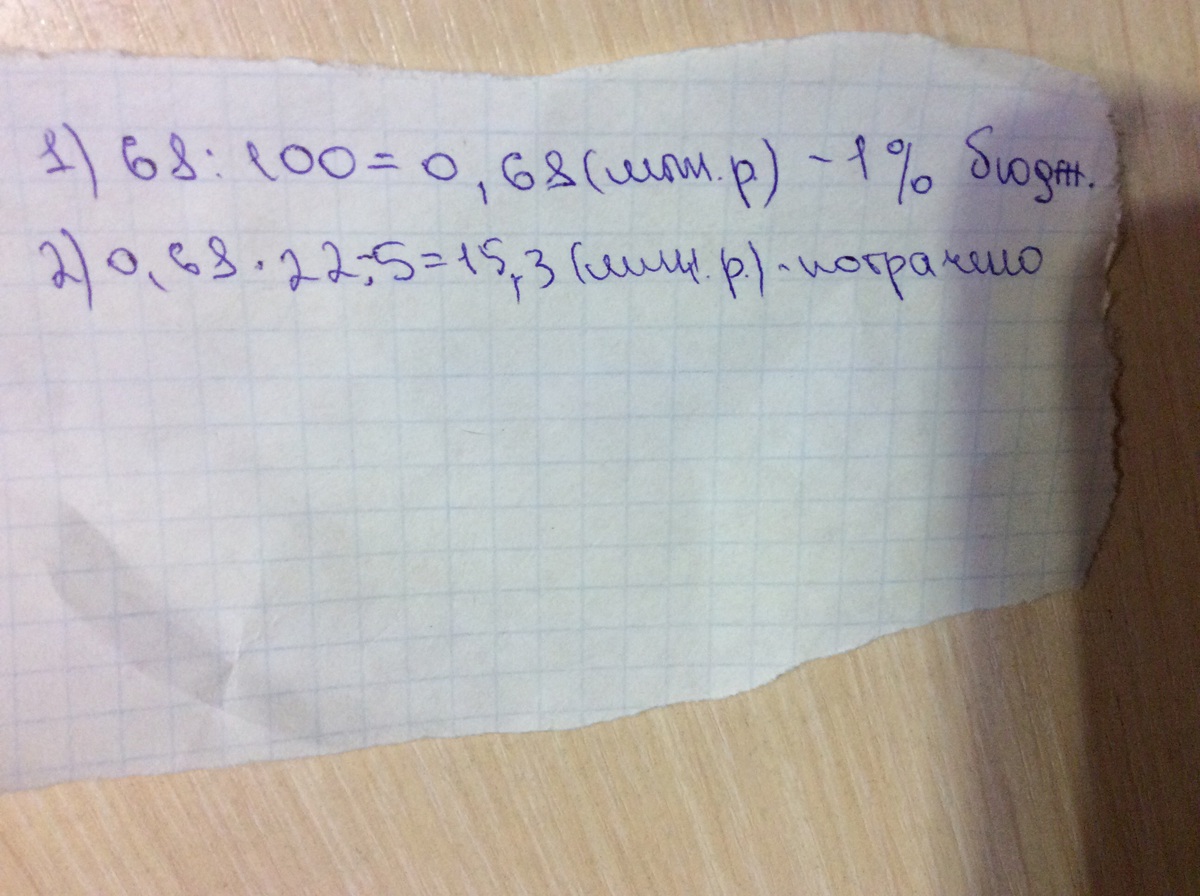 1) 68 : 100 = 0,68 (млн. р.) - 1% бюдж.
2) 0,68 · 22,5 = 15,3 (млн. р.) - потрачено